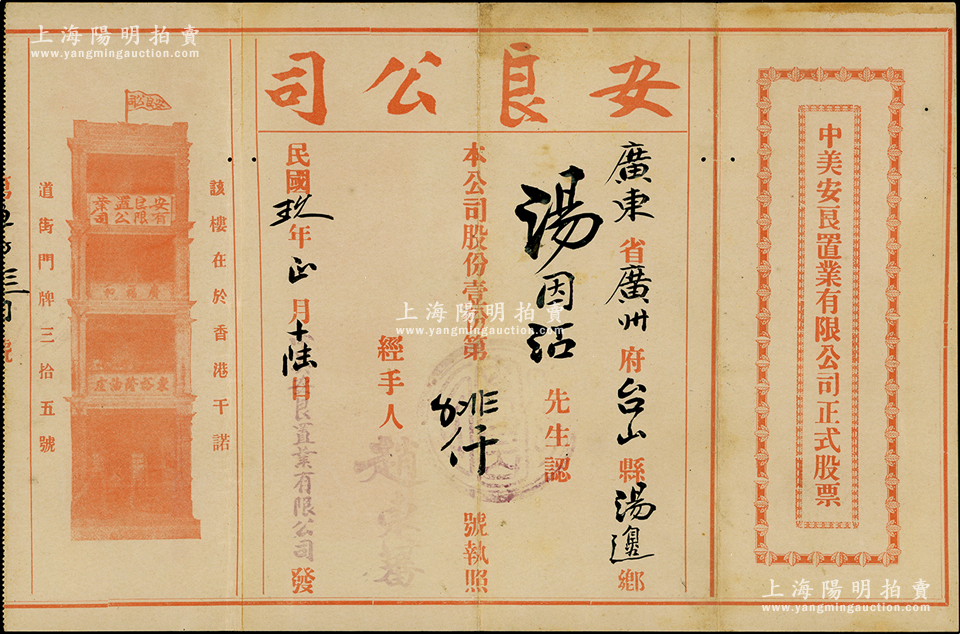 中美安良置業有限公司正式股票
安良公司
廣東省廣州府台山縣湯邊鄉
湯因紹先生認
本公司股份壹份第
仟號執照
經手人
趙
民國玖年正月十陸日發
良置業有限公司
該樓在於香港干諾
道街門牌三拾五號
安良公司
安良置業
有限公司
廣福和
上海陽明拍賣
www.yangmingauction.com
上海陽明拍賣
www.yangmingauction.com
上海陽明拍賣
www.yangmingauction.com
上海陽明拍賣
www.yangmingauction.com